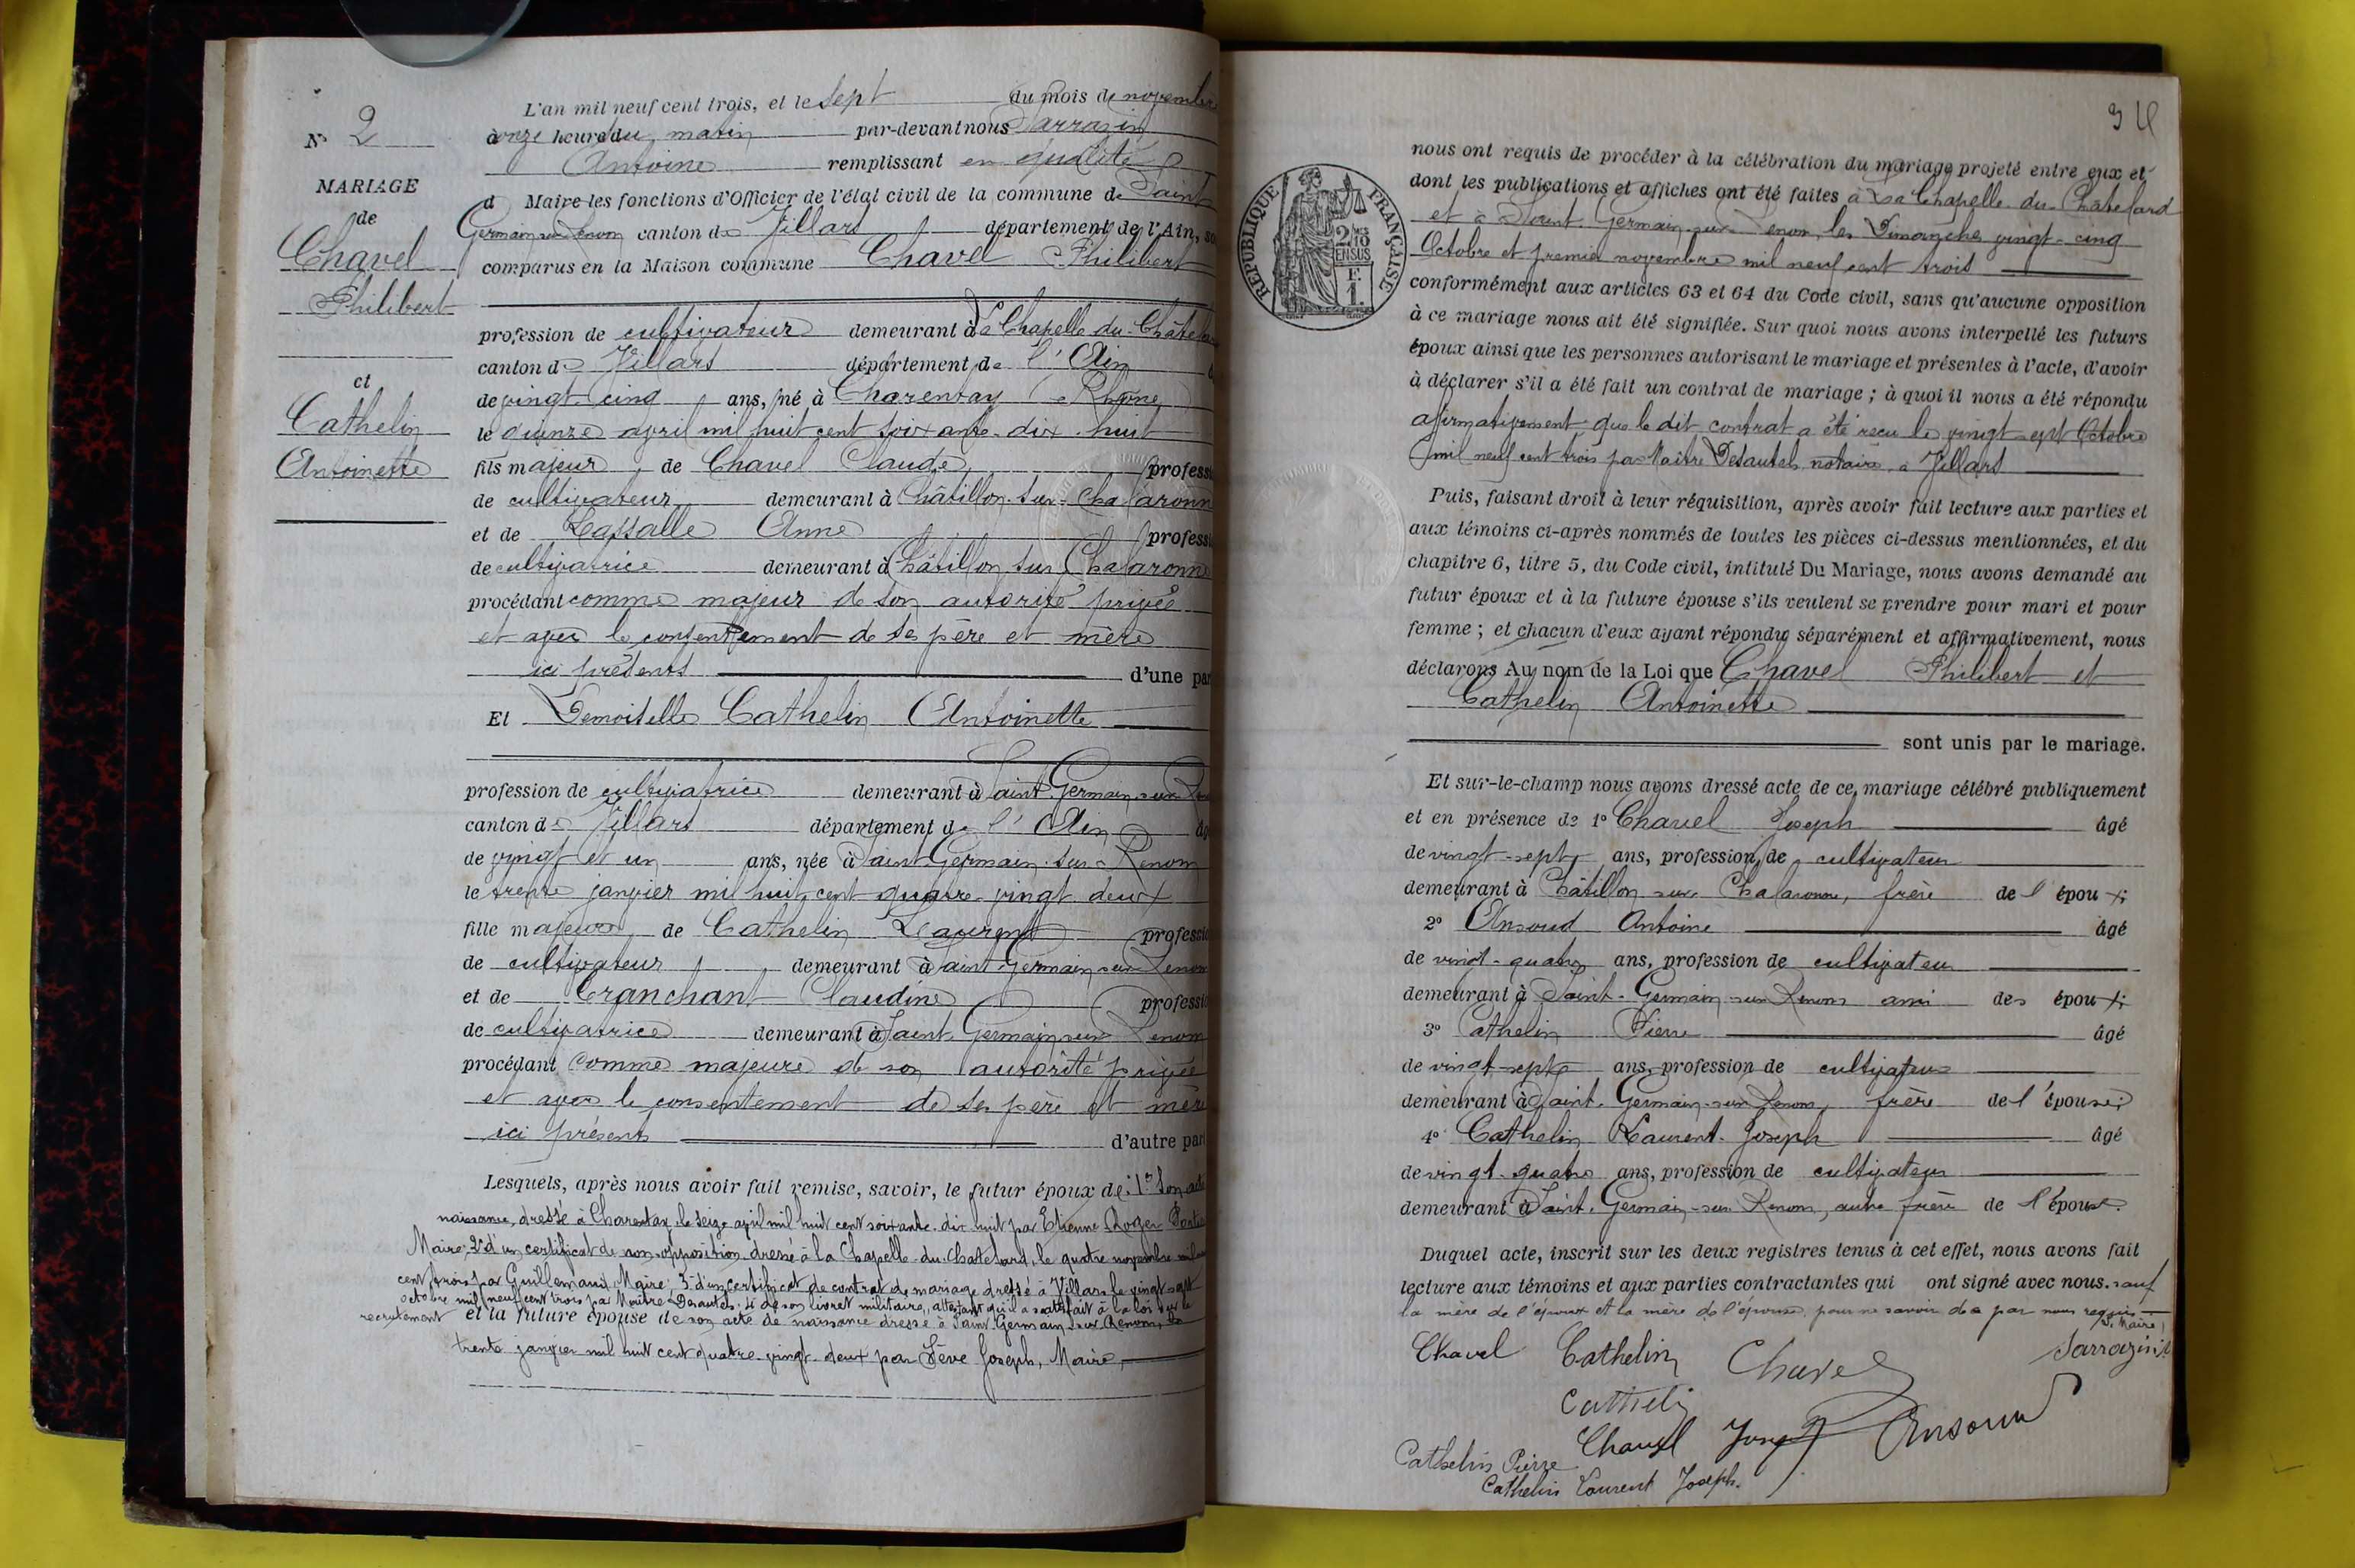 N° 2
MARIAGE
de
Chavel
Philibert
et
Cathelin
Antoinette
L'an mil neuf cent trois, et le sept du mois de novembre
à onze heure du matin par-devant nous Sarrazin
Antoine remplissant en qualité
d Maire les fonctions d'Officier de l'état civil de la commune de Saint
Germain sur Renon canton de Villars département de l'Ain, so
comparus en la Maison commune Chavel Philibert
profession de cultivateur demeurant à La Chapelle du Châtela
canton de Villars département de l'Ain
de vingt-cinq ans, né à Charentay (Rhône)
le quinze avril mil huit cent soixante-dix-huit
fils majeur de Chavel Claude professi
de cultivateur demeurant à Châtillon-sur-Chalaronn
et de Lassalle Anne professi
de cultivatrice demeurant à Châtillon sur Chalaronne
procédant comme majeur de son autorité privée
et avec le consentement de ses père et mère
ici présents d'une par
Et Demoiselle Cathelin Antoinette
profession de cultivatrice demeurant à Saint-Germain-sur-Ren
canton de Villars département de l'Ain âg
de vingt et un ans, née à Saint-Germain-sur-Renom
le trente janvier mil huit cent quatre-vingt deux
fille majeure de Cathelin Laurent professi
de cultivateur demeurant à Saint-Germain-sur-Renom
et de Tranchant Claudine professi
de cultivatrice demeurant à Saint-Germain-sur-Renom
procédant comme majeure de son autorité privée
et avec le consentement de ses père et mère
ici présents d'autre part
Lesquels, après nous avoir fait remise, savoir, le futur époux de: 1° Son acte
naissance, dressé à Charentay, le seize avril mil huit cent soixante-dix huit par Etienne Rozier
Maire; 2° d'un certificat de non-opposition dressé à la Chapelle-du-Chatelard, le quatre novembre mil neuf
cent trois par Guillemaud, Maire; 3° d'un certificat de contrat de mariage dressé à Villars le vingt-sept
octobre mil neuf cent trois par Maître Desautels; 4° de son livret militaire, attestant qu'il a satisfait à la loi sur le
recrutement et la future épouse de son acte de naissance dressé à Saint Germain-sur-Renom, le
trente janvier mil huit cent quatre-vingt-deux par Fève Joseph, Maire,
34
RÉPUBLIQUE FRANÇAISE
2/10 EN SUS
F. 1.
nous ont requis de procéder à la célébration du mariage projeté entre eux et
dont les publications et affiches ont été faites à La Chapelle-du-Chatelard
et à Saint-Germain-sur-Renon, les Dimanche vingt-cinq
Octobre et premier novembre mil neuf cent trois
conformément aux articles 63 et 64 du Code civil, sans qu'aucune opposition
à ce mariage nous ait été signifiée. Sur quoi nous avons interpellé les futurs
époux ainsi que les personnes autorisant le mariage et présentes à l'acte, d'avoir
à déclarer s'il a été fait un contrat de mariage; à quoi il nous a été répondu
affirmativement que le dit contrat a été reçu le vingt-sept Octobre
mil neuf cent trois par Maître Desautels notaire à Villars
Puis, faisant droit à leur réquisition, après avoir fait lecture aux parties et
aux témoins ci-après nommés de toutes les pièces ci-dessus mentionnées, et du
chapitre 6, titre 5, du Code civil, intitulé Du Mariage, nous avons demandé au
futur époux et à la future épouse s'ils veulent se prendre pour mari et pour
femme; et chacun d'eux ayant répondu séparément et affirmativement, nous
déclarons Au nom de la Loi que Chavel Philibert et
Cathelin Antoinette
sont unis par le mariage.
Et sur-le-champ nous avons dressé acte de ce mariage célébré publiquement
et en présence de 1° Chavel Joseph âgé
de vingt-sept ans, profession de cultivateur
demeurant à Châtillon-sur-Chalaronne, frère de l'époux;
2° Ansoud Antoine âgé
de vingt-quatre ans, profession de cultivateur
demeurant à Saint-Germain-sur-Renom ami des époux;
3° Cathelin Pierre âgé
de vingt-sept ans, profession de cultivateur
demeurant à Saint-Germain-sur-Renom, frère de l'épouse;
4° Cathelin Laurent-Joseph âgé
de vingt-quatre ans, profession de cultivateur
demeurant à Saint-Germain-sur-Renom, autre frère de l'épouse.
Duquel acte, inscrit sur les deux registres tenus à cet effet, nous avons fait
lecture aux témoins et aux parties contractantes qui ont signé avec nous. sauf
la mère de l'époux et la mère de l'épouse, pour ne savoir de ce par nous requis
Le Maire,
Chavel Cathelin Chavel Sarrazin
Cathelin
Chavel Joseph Ansoud
Cathelin Pierre
Cathelin Laurent Joseph.